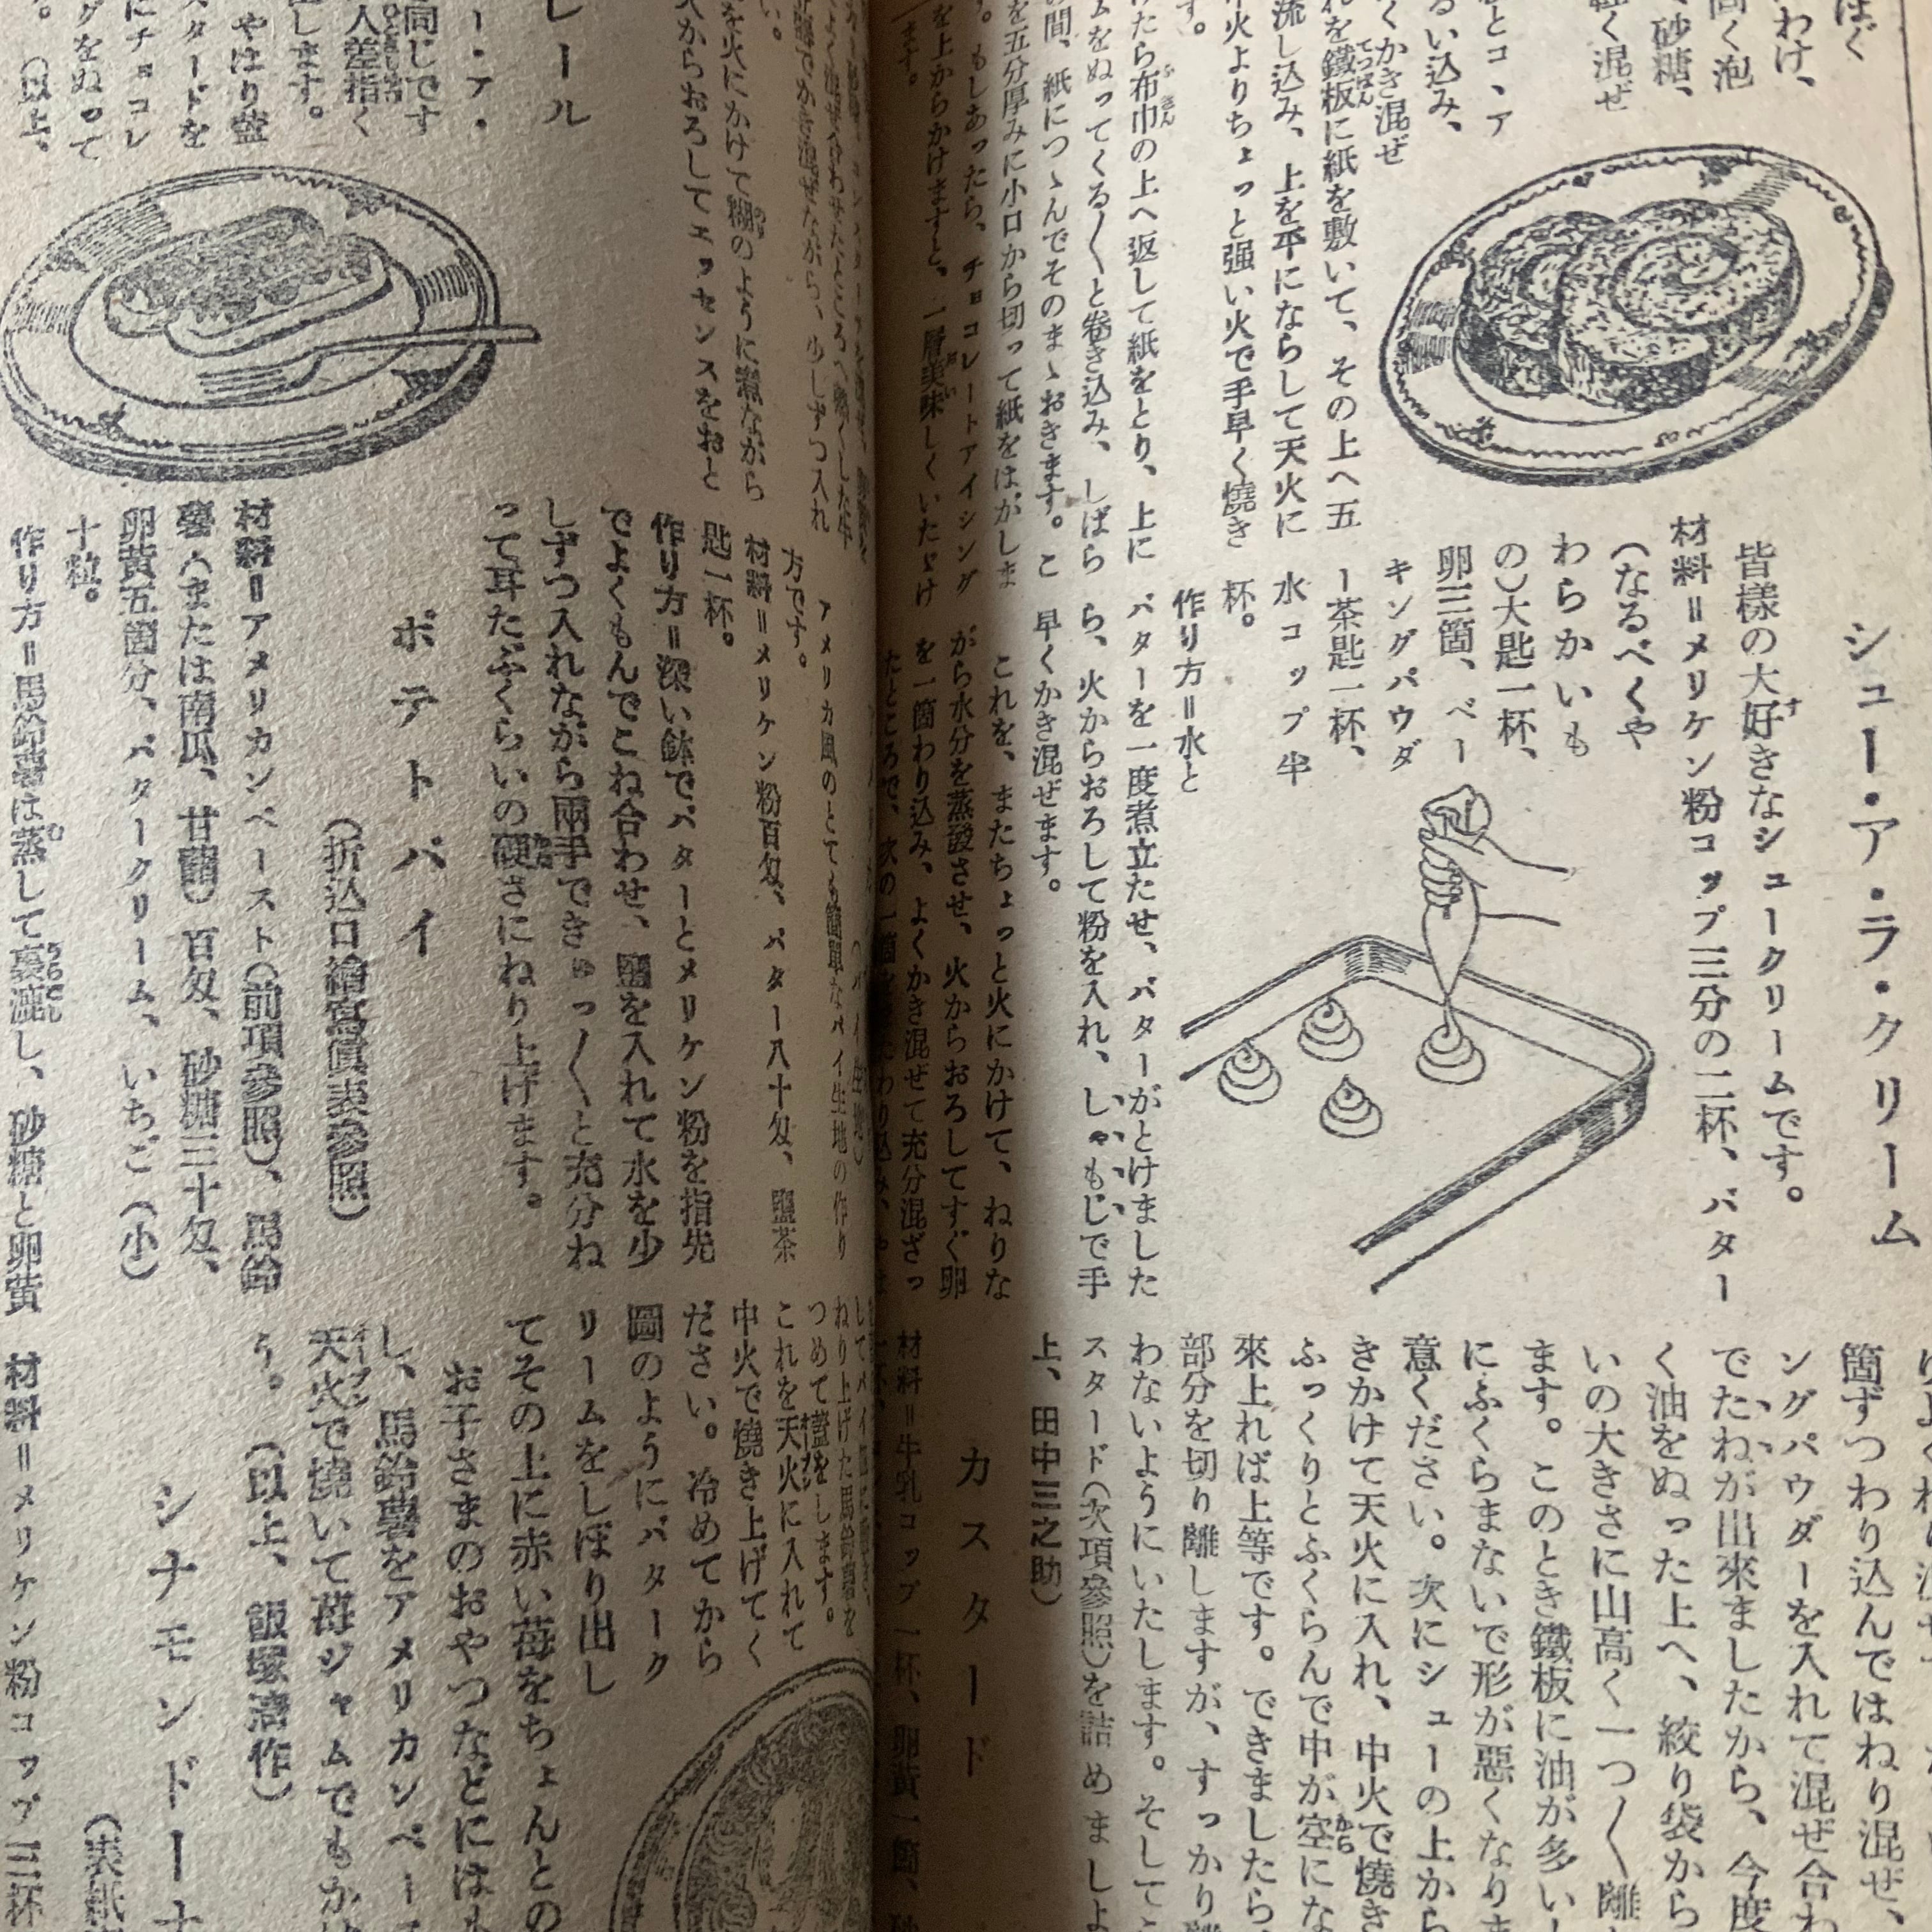 はぐ
わけ、
高く泡
砂糖、
軽く混ぜ
とコ、ア
るい込み、
くかき混ぜ
れを鐵板に紙を敷いて、その上へ五
流し込み、上を平にならして天火に
火よりちょっと强い火で手早く燒き
す。
たら布巾の上へ返して紙をとり、上に
ムをぬってくる〱と卷き込み、しばら
の間、紙につゝんでそのまゝおきます。こ
を五分厚みに小口から切って紙をはがしま
す。もしあったら、チョコレートアイシング
を上からかけますと、一層美味しくいたゞけ
ます。
シュー・ア・ラ・クリーム
皆樣の大好きなシュークリームです。
材料＝メリケン粉コップ三分の二杯、バター
(なるべくや
わらかいも
の)大匙一杯、
卵三箇、ベー
キングパウダ
ー茶匙一杯、
水コップ半
杯。
作り方＝水と
バターを一度煮立たせ、バターがとけました
ら、火からおろして粉を入れ、しゃもじで手
早くかき混ぜます。
これを、またちょっと火にかけて、ねりな
がら水分を蒸發させ、火からおろしてすぐ卵
を一箇わり込み、よくかき混ぜて充分混ざっ
たところで、次の一箇を
箇ずつわり込んではねり混ぜ、
ングパウダーを入れて混ぜ合わ
でたねが出來ましたから、今度
く油をぬった上へ、絞り袋から
いの大きさに山高く一つ〱離
ます。このとき鐵板に油が多い
にふくらまないで形が惡くなりま
意ください。次にシューの上から
きかけて天火に入れ、中火で燒き
ふっくりとふくらんで中が空にな
來上れば上等です。できましたら、
部分を切り離しますが、すっかり離
わないようにいたします。そしてこ
スタード(次項參照)を詰めましよ
上、田中三之助)
カスタード
材料＝牛乳コップ一杯、卵黃一箇、砂
レール
ー・ア・
同じです
人差指く
します。
やはり蓋
スタードを
にチョコレ
グをぬって
す。(以上、
を火にかけて糊のように煮ながら
火からおろしてエッセンスをおと
アメリカ風のとても簡單なパイ生地の作り
方です。
材料＝メリケン粉百匁、バター八十匁、鹽茶
匙一杯。
作り方＝深い鉢でバターとメリケン粉を指先
でよくもんでこね合わせ、鹽を入れて水を少
しずつ入れながら兩手できゅっ〱と充分ね
って耳たぶくらいの硬さにねり上げます。
ポテトパイ
(折込口繪寫眞表參照)
材料＝アメリカンペースト(前項參照)、馬鈴
薯(または南瓜、甘藷)百匁、砂糖三十匁、
卵黃五箇分、バタークリーム、いちご(小)
十粒。
作り方＝馬鈴薯は蒸して裏漉し、砂糖と卵黃
ねり上げた馬鈴薯を
つめて蓋をします。
これを天火に入れて
中火で燒き上げてく
ださい。冷めてから
圖のようにバターク
リームをしぼり出し
てその上に赤い苺をちょんとの
お子さまのおやつなどにはも
し、馬鈴薯をアメリカンペース
天火で燒いて苺ジャムでもかけ
う。(以上、飯塚淸作)
シナモンドーナ
(表紙
材料＝メリケン粉コップ三杯